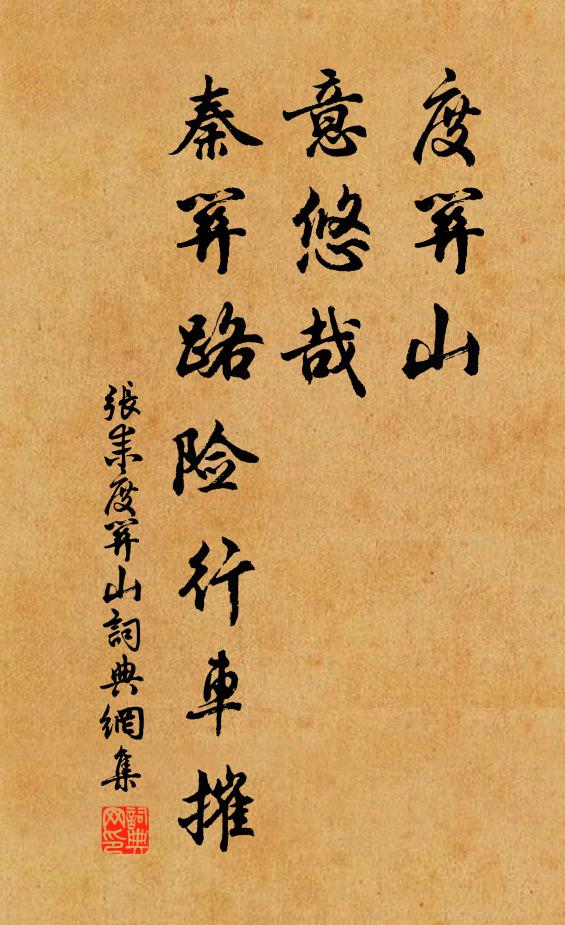 度關山
意悠哉
秦關路险行車摧
張耒度關山詞典網集
詞典
网印